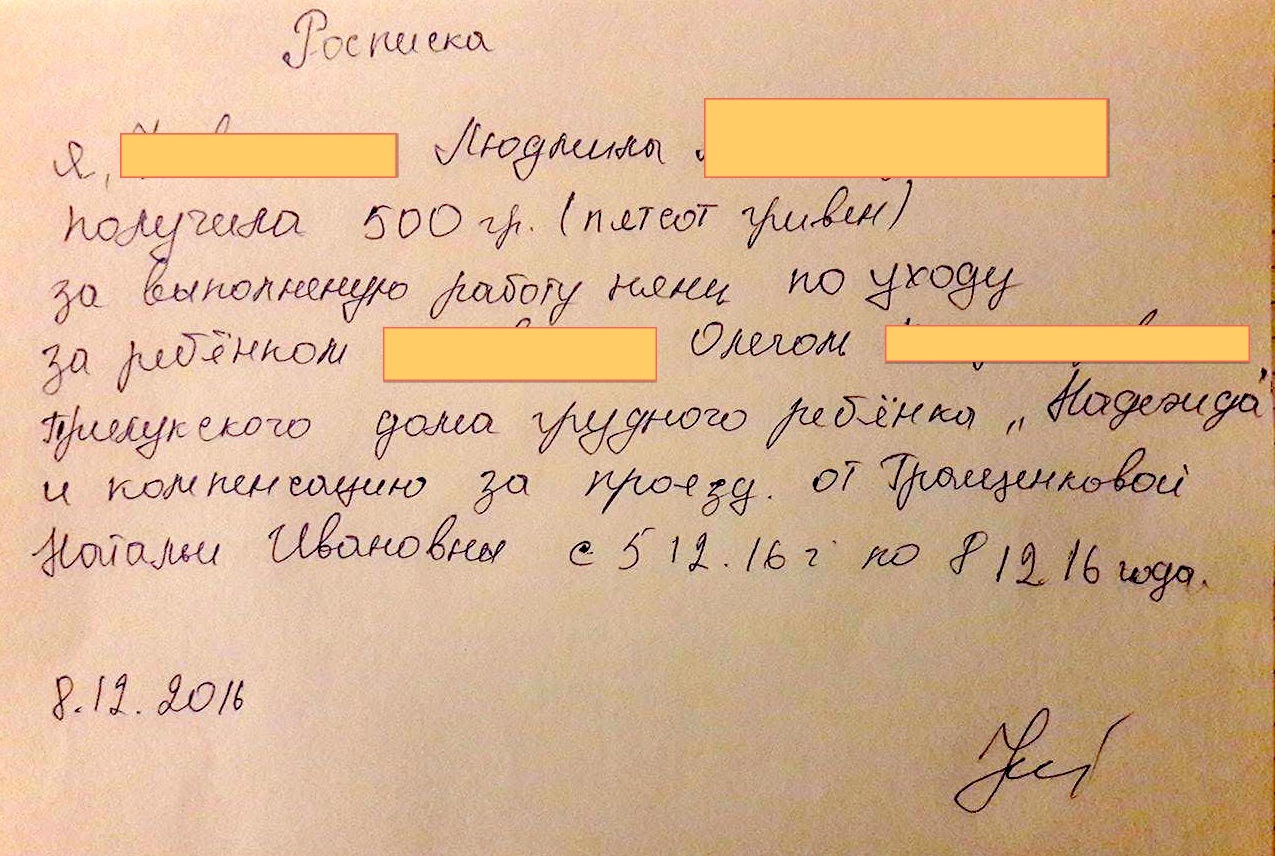 Росписка
Я, Людмилы
получила 500 гр. (пятсот гривен)
за выполненую работу няни по уходу
за ребёнком Олегом
Прилукского дома грудного ребёнка „Надежида"
и компенсацию за проезд. от Гращенковой
Натальи Ивановны с 5 12.16 г по 8 12 16 года.
8.12.2016